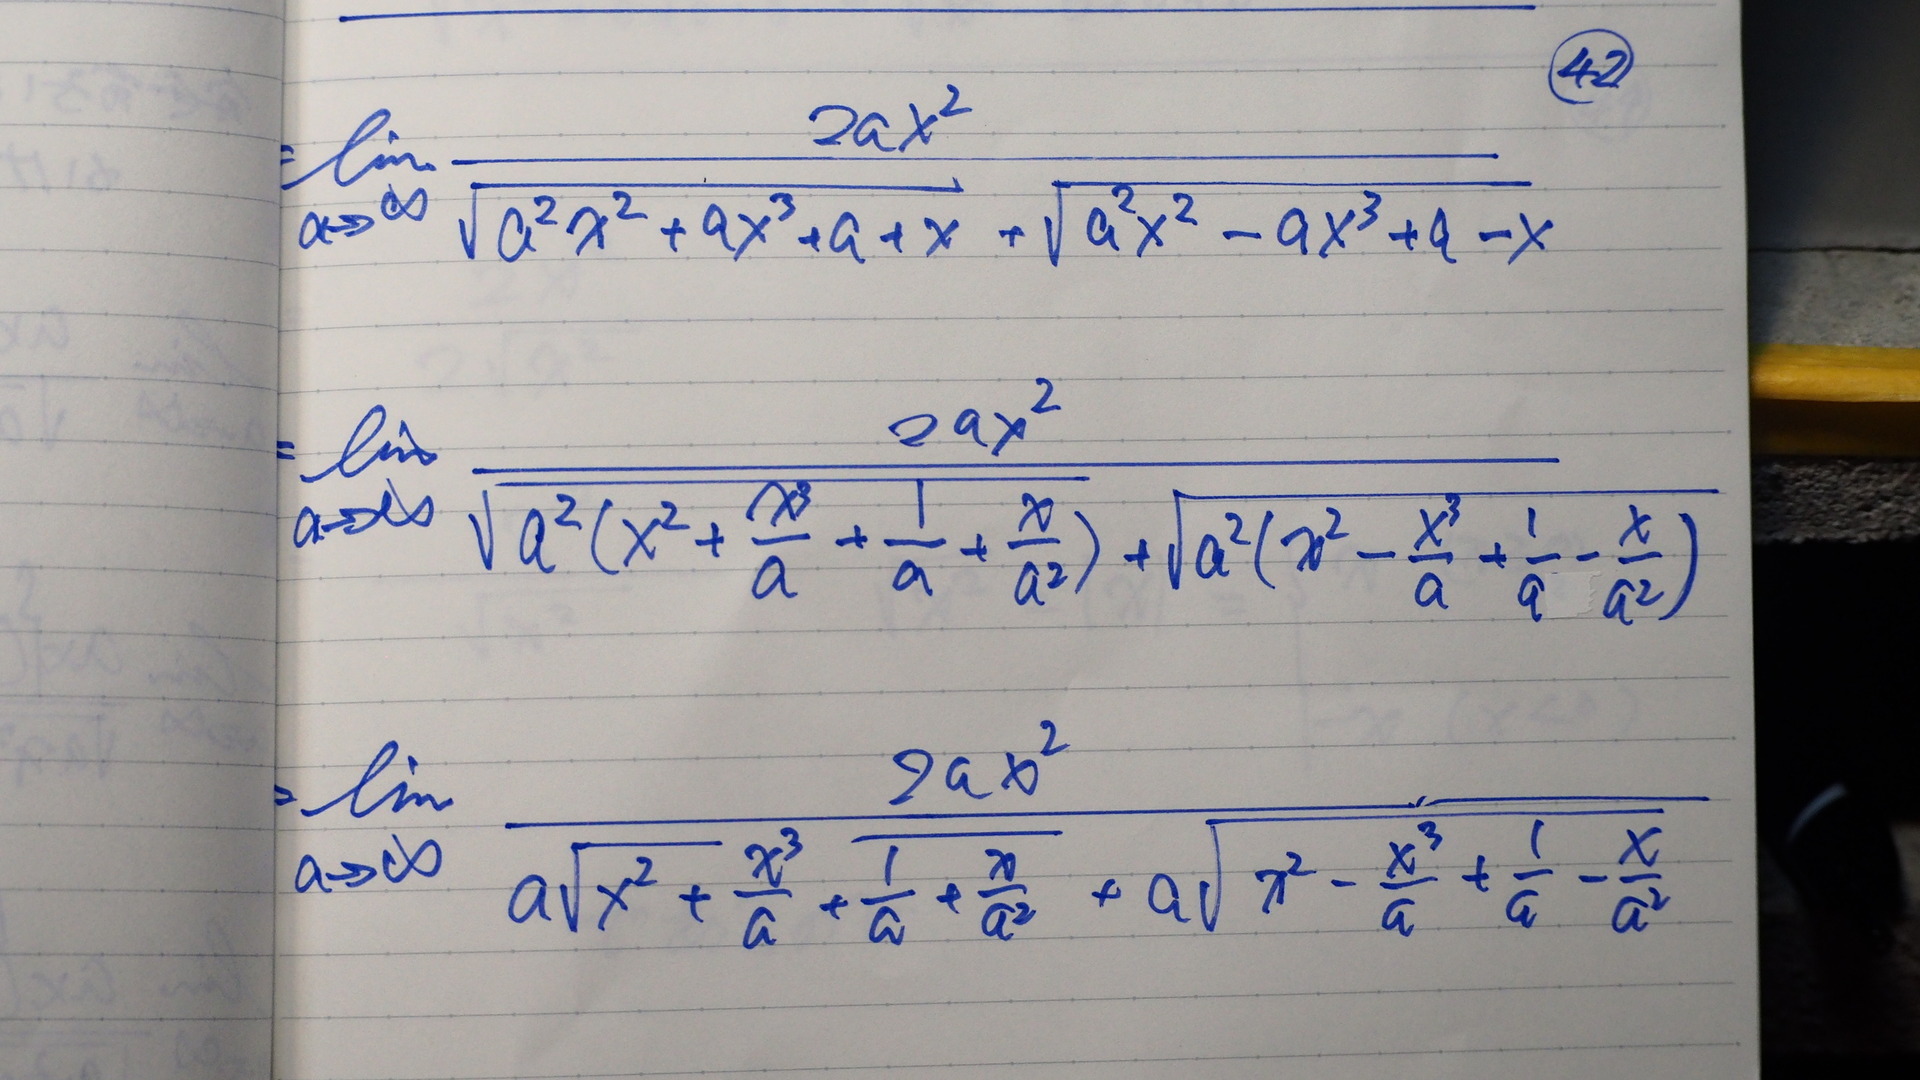 42
= lim a→∞ 2ax² / (√(a²x² + ax³ + a + x) + √(a²x² - ax³ + a - x))
= lim a→∞ 2ax² / (√(a²(x² + x³/a + 1/a + x/a²)) + √(a²(x² - x³/a + 1/a - x/a²)))
= lim a→∞ 2ax² / (a√(x² + x³/a + 1/a + x/a²) + a√(x² - x³/a + 1/a - x/a²))